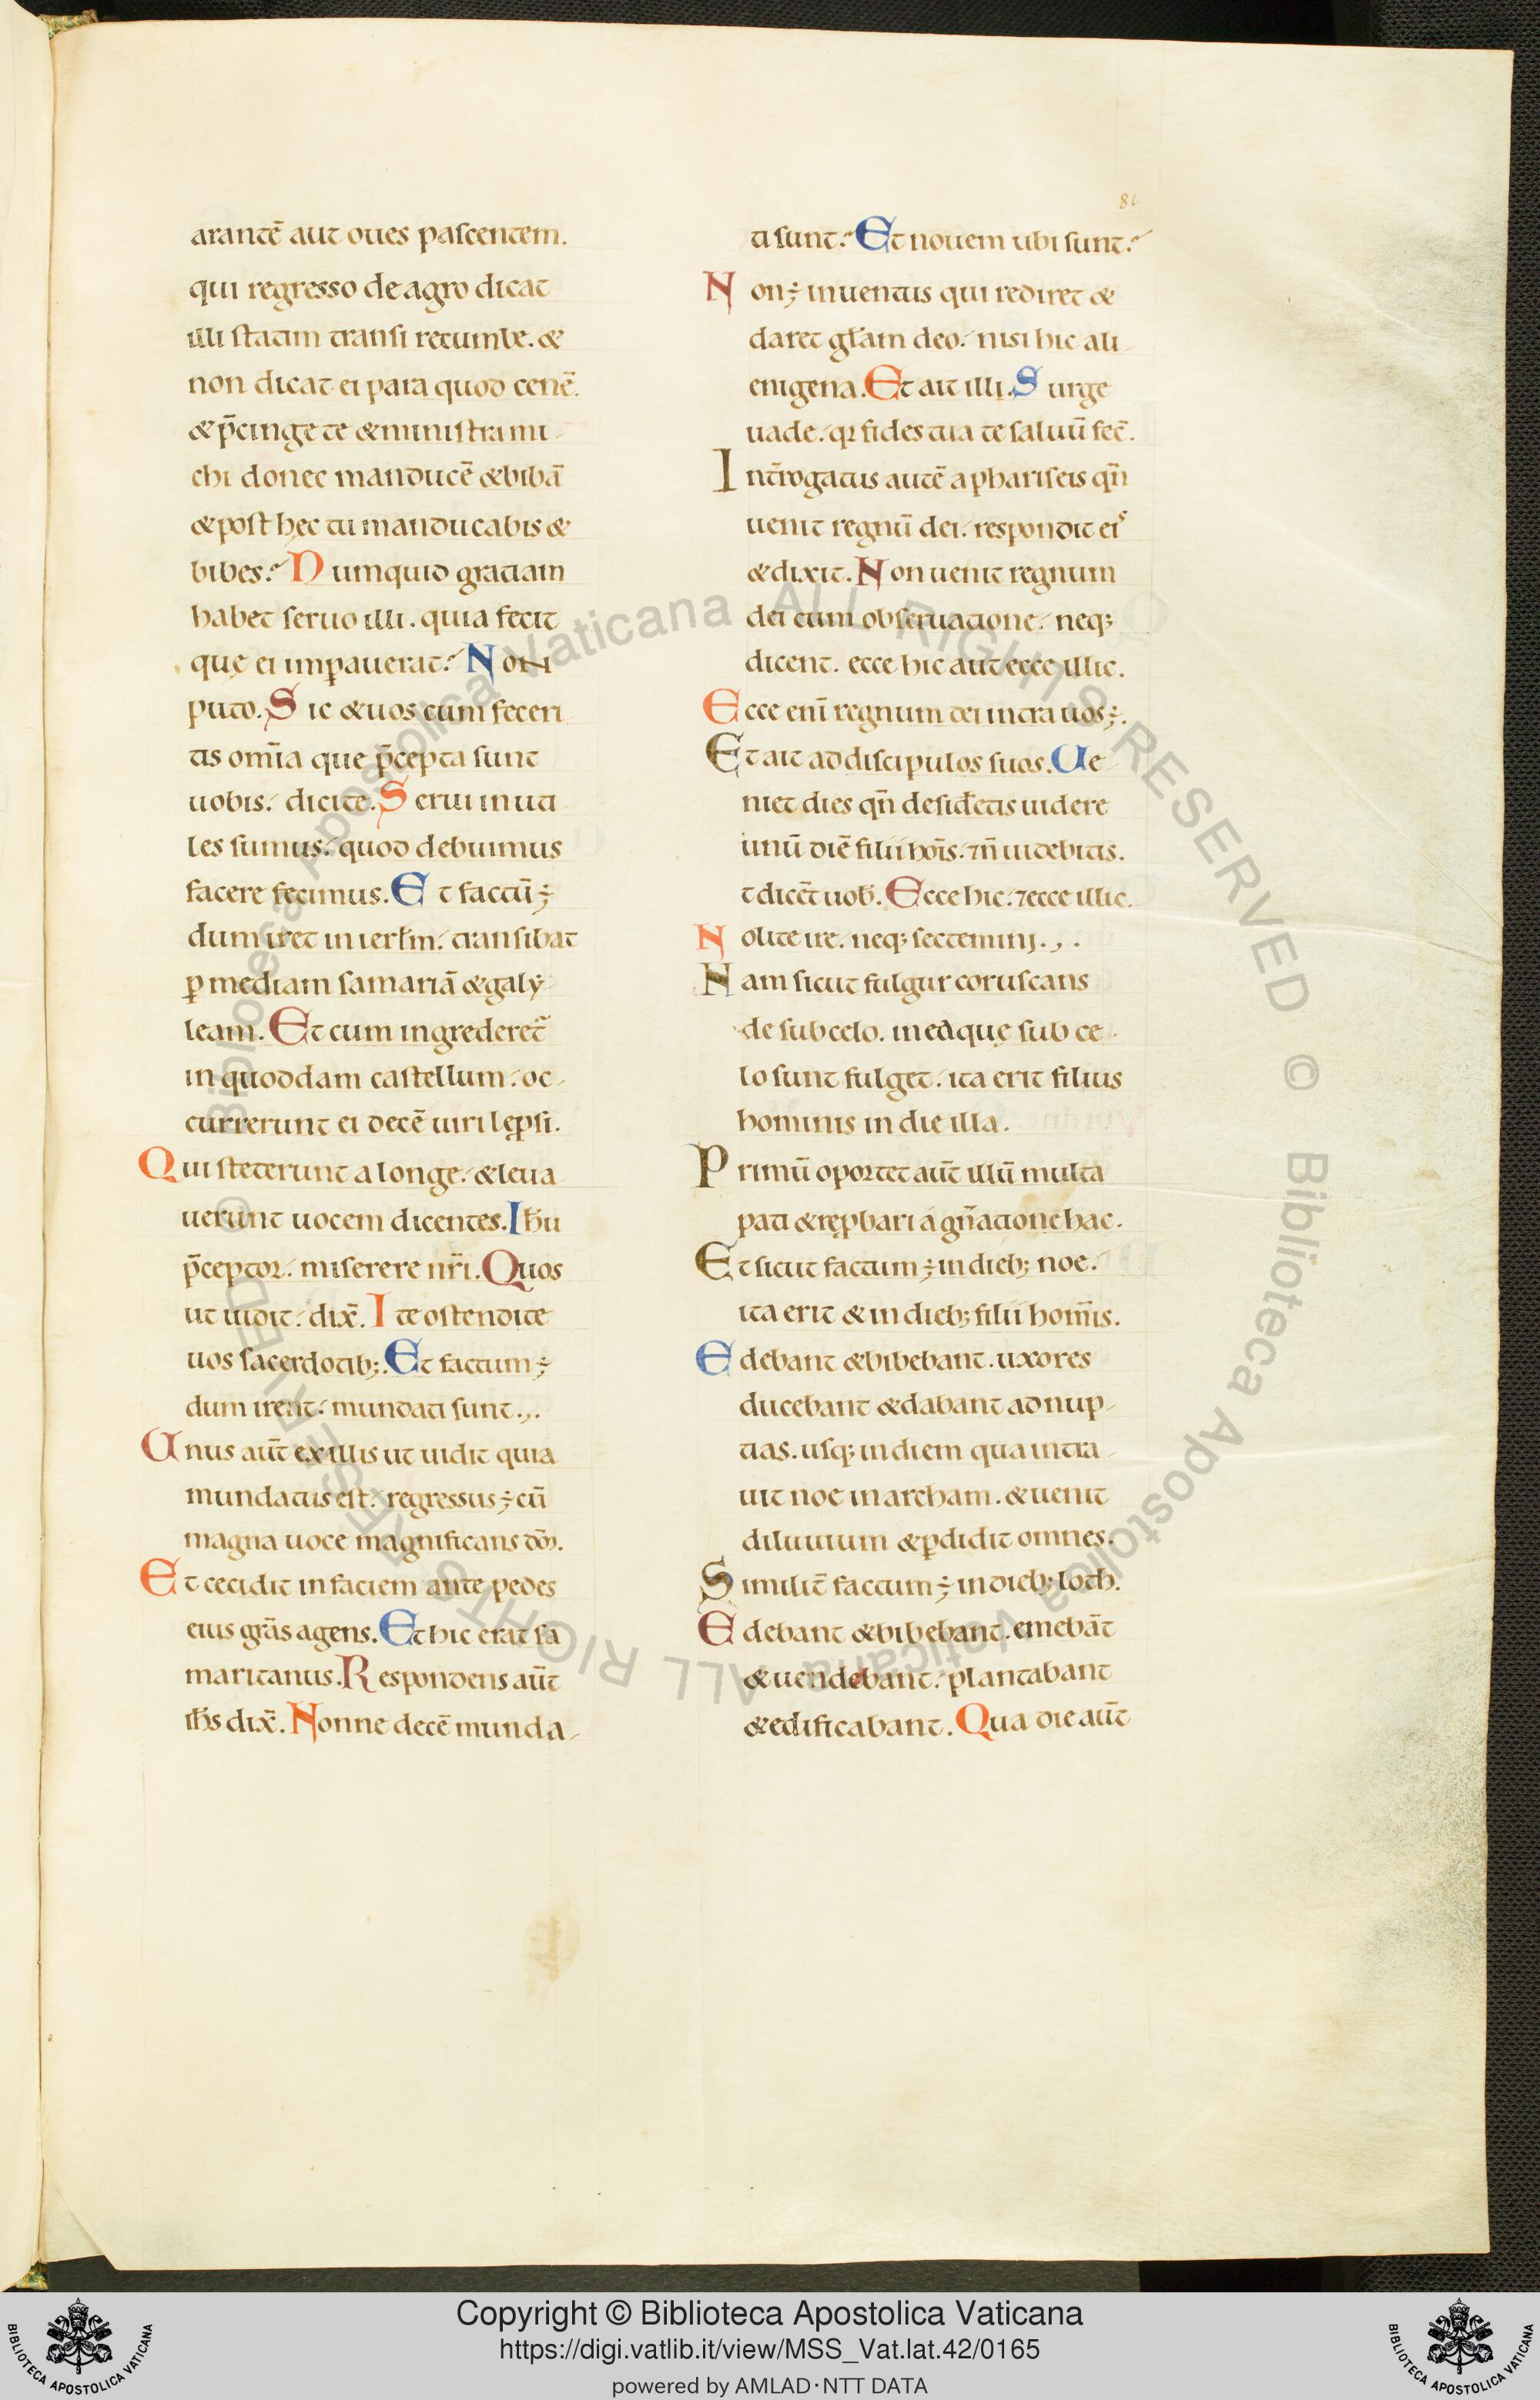 81
arantē aut oues pascentem.
qui regresso de agro dicat
illi statim transi recumbe. &
non dicat ei para quod cenē.
& p̄cinge te & ministra mi-
chi donec manducē & bibā
& post hęc tu manducabis &
bibes? Numquid gratiam
habet seruo illi. quia fecit
quę ei imꝑauerat? Non
puto. Sic & uos cum feceri
tis om̄ia que p̄cepta sunt
uobis. dicite. Serui inuti
les sumus. quod debuimus
facere fecimus. Et factū ÷
dum iret in ierłm. transibat
ꝑ mediam samariā & galy-
leam. Et cum ingrederet᷑
in quoddam castellum. oc-
currerunt ei decē uiri lęprsi.
Qui steterunt a longe. & leua
uerunt uocem dicentes. Ihu
p̄ceptor. miserere nr̄i. Quos
ut uidit. dix̄. Ite ostendite
uos sacerdotib;. Et factum ÷
dum irent. mundati sunt.,.
Unus aūt ex illis ut uidit quia
mundatus est. regressus ÷ cū
magna uoce magnificans dm̄.
Et cecidit in faciem ante pedes
eius grā̄s agens. Et hic erat sa
maritanus. Respondens aūt
ih̄s dix̄. Nonne decē munda-
ti sunt? Et nouem ubi sunt?
Non ÷ inuentus qui rediret &
daret głam deo. nisi hic ali-
enigena. Et ait illi. Surge
uade. qꝛ fides tua te saluū fec̄.
Int̄rogatus autē a phariseis qn̄
uenit regnū dei. respondit eis
& dixit. Non uenit regnum
dei cum obseruatione. neq;
dicent. ecce hic aut ecce illic.
Ecce enī regnum dei intra uos ÷.
Et ait ad discipulos suos. Ue
niet dies qn̄ desid̄etis uidere
unū diē filii hōis. ⁊ n̄ uidebitis.
t dicēt uob̄. Ecce hic. ⁊ ecce illic.
Nolite ire. neq; sectemini.,.
Nam sicut fulgur coruscans
de sub celo. in ea quę sub ce-
lo sunt fulget. ita erit filius
hominis in die illa.
Primū oportet aūt illū multa
pati & reꝓbari a gn̄atione hac.
Et sicut factum ÷ in dieb; noe.
ita erit & in dieb; filii hom̄is.
Edebant & bibebant. uxores
ducebant & dabant ad nup-
tias. usq; in diem qua intra-
uit noe in archam. & uenit
diluuium & ꝑdidit omnes.
Similit̄ factum ÷ in dieb; loth.
Edebant & bibebant. emebāt
& uendebant. plantabant
& edificabant. Qua die aūt
© Biblioteca Apostolica Vaticana ALL RIGHTS RESERVED © Biblioteca Apostolica Vaticana ALL RIGHTS RESERVED
Copyright © Biblioteca Apostolica Vaticana
https://digi.vatlib.it/view/MSS_Vat.lat.42/0165
powered by AMLAD·NTT DATA
BIBLIOTECA APOSTOLICA VATICANA
BIBLIOTECA APOSTOLICA VATICANA